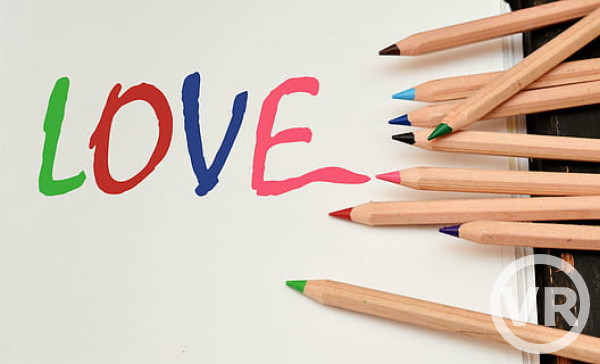 LOVE
VR